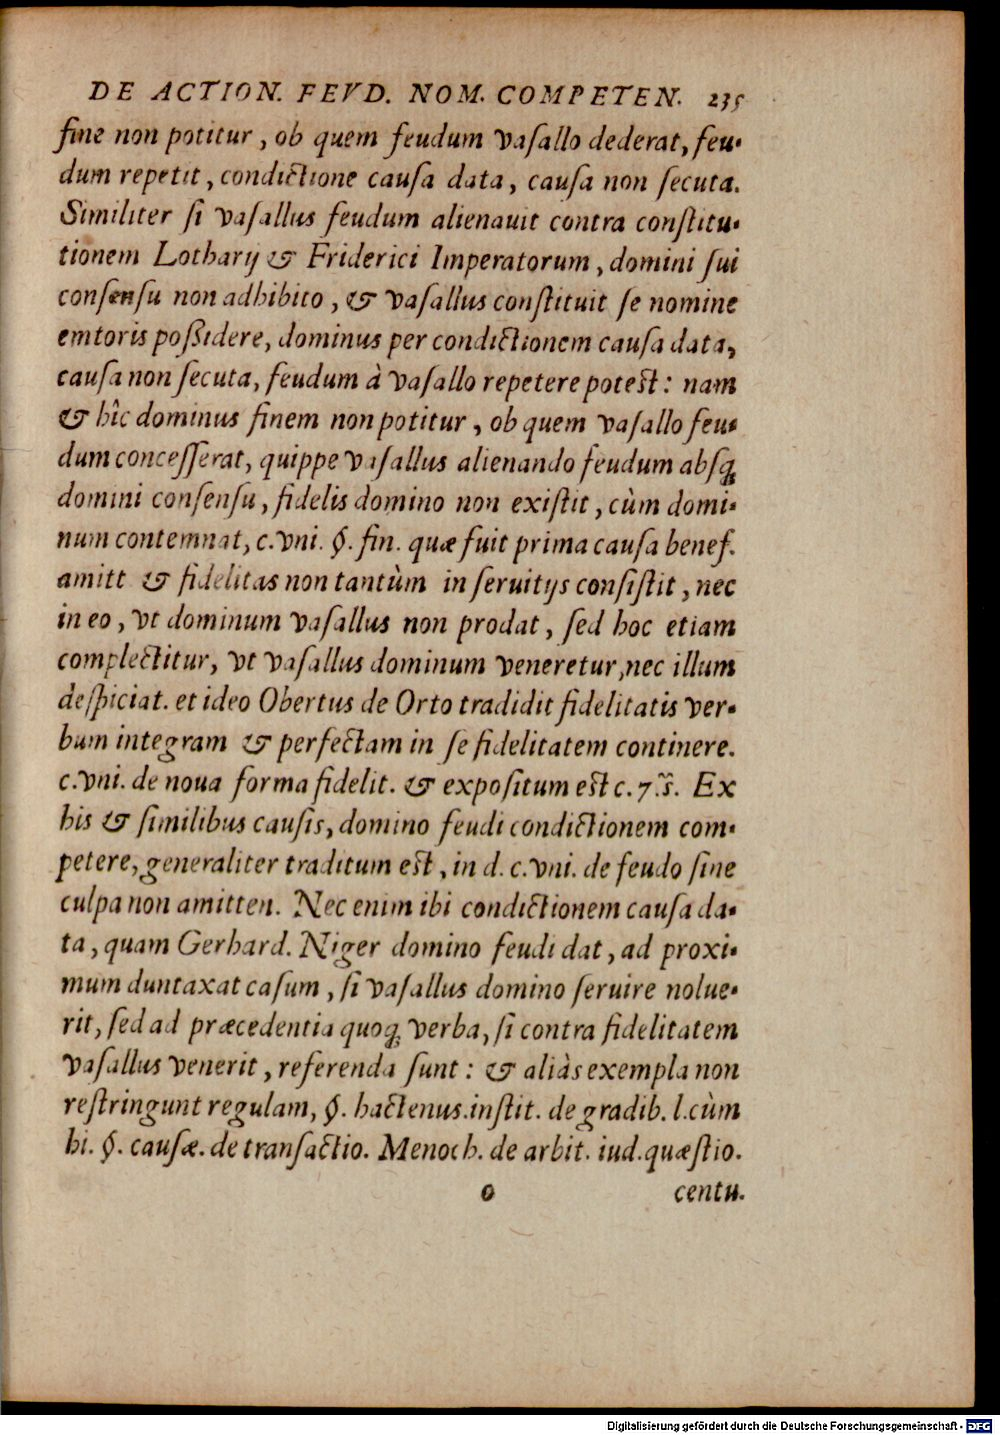 DE ACTION. FEVD. NOM. COMPETEN. 235
fine non potitur, ob quem feudum vasallo dederat, feu-
dum repetit, condictione causa data, causa non secuta.
Similiter si vasallus feudum alienauit contra constitu-
tionem Lotharij & Friderici Imperatorum, domini sui
consensu non adhibito, & vasallus constituit se nomine
emtoris possidere, dominus per condictionem causa data,
causa non secuta, feudum à vasallo repetere potest: nam
& hîc dominus finem non potitur, ob quem vasallo feu-
dum concesserat, quippe vasallus alienando feudum absq;
domini consensu, fidelis domino non existit, cùm domi-
num contemnat, c.vni. §. fin. quæ fuit prima causa benef.
amitt & fidelitas non tantùm in seruitijs consistit, nec
in eo, vt dominum vasallus non prodat, sed hoc etiam
complectitur, vt vasallus dominum veneretur, nec illum
despiciat. et ideo Obertus de Orto tradidit fidelitatis ver-
bum integram & perfectam in se fidelitatem continere.
c.vni. de noua forma fidelit. & expositum est c. 7. s̃. Ex
his & similibus causis, domino feudi condictionem com-
petere, generaliter traditum est, in d. c.vni. de feudo sine
culpa non amitten. Nec enim ibi condictionem causa da-
ta, quam Gerhard. Niger domino feudi dat, ad proxi-
mum duntaxat casum, si vasallus domino seruire nolue-
rit, sed ad præcedentia quoq; verba, si contra fidelitatem
vasallus venerit, referenda sunt: & aliàs exempla non
restringunt regulam, §. hactenus. instit. de gradib. l. cùm
hi. §. causæ. de transactio. Menoch. de arbit. iud. quæstio.
o centu.
Digitalisierung gefördert durch die Deutsche Forschungsgemeinschaft - DFG